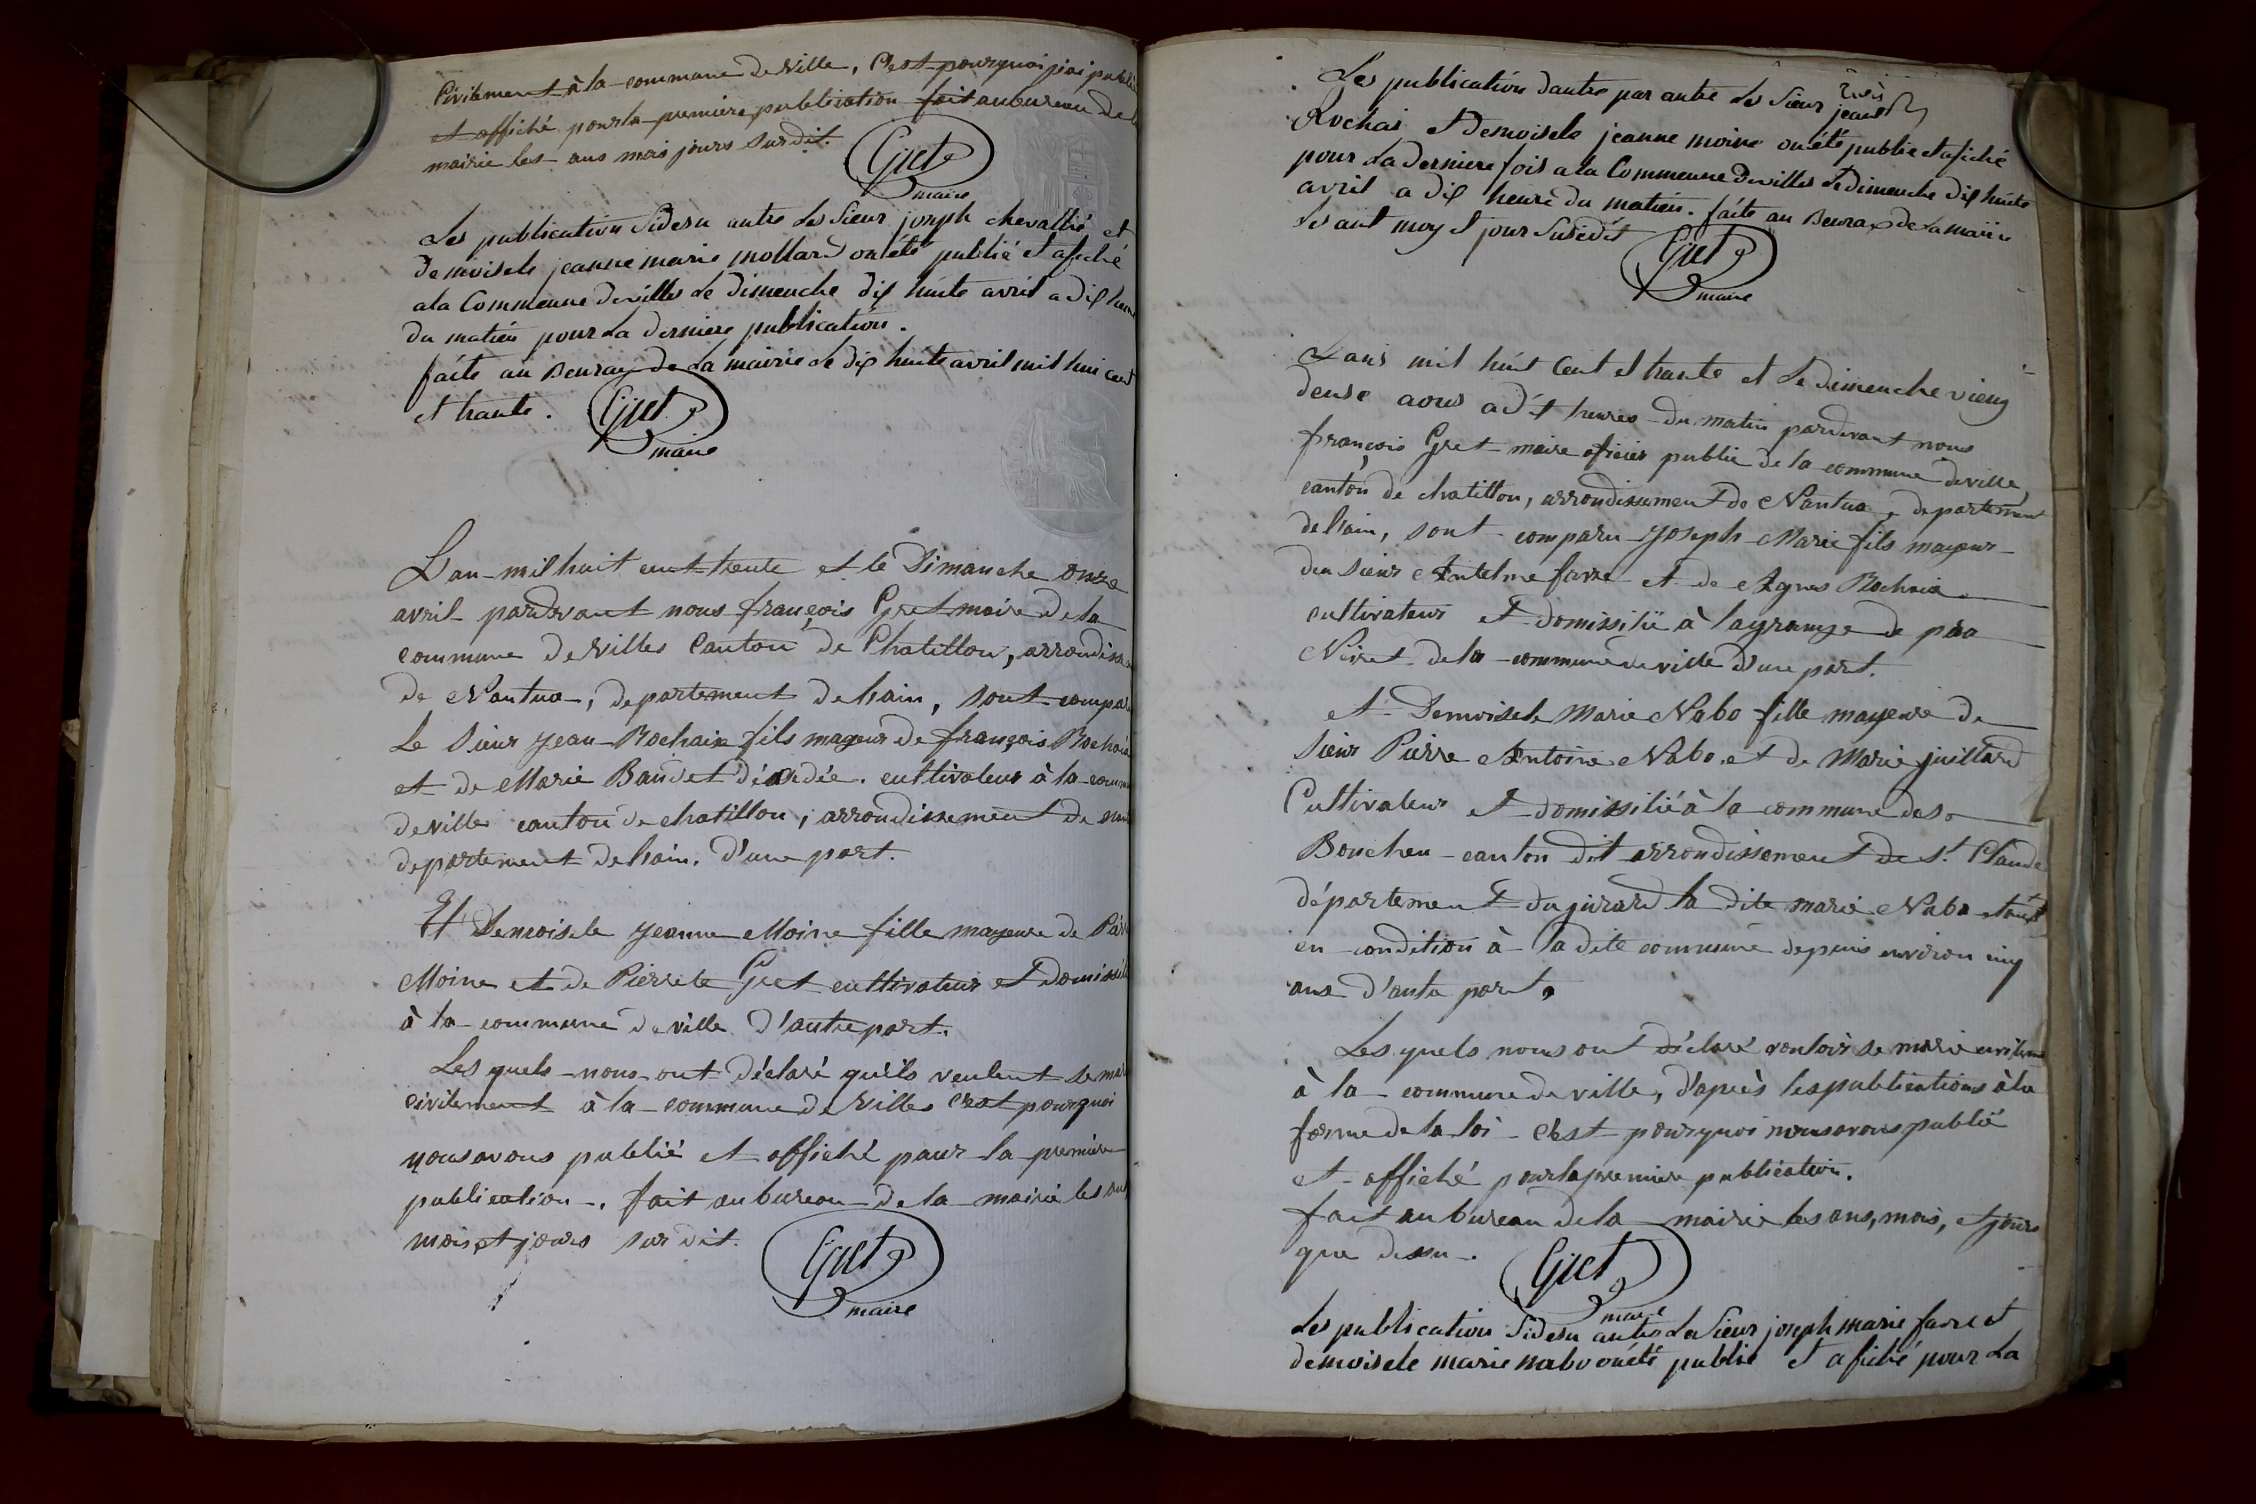 Civilement à la commune de Ville, C'est pourquoi j'ai publié
et affiché pour la premiere publication fait au bureau de la
mairie les ans mois jours sur dit.
Gret
maire
Les publication sidesu autre Les sieur joseph chevallié et
demoisele jeanne marie mollard on été publié et afiché
ala Commeune de villes Le dimenche dix huite avril a dix heure
du matien pour La derniere publication.
faite au Beurau de La mairie Le dix huite avril mil hui cent
et trante.
Gret
maire
L'an mil huit cent trente et le Dimanche onze
avril pardevant nous françois Gret maire de la
commune de Villes Canton de Chatillon, arrondisse
de Nantua, departement de l'ain, sont compar
Le Sieur Jean Rochaix fils mageur de françois Rochaix
et de Marie Baudet décédée. cultivateur à la comm
de ville canton de chatillon, arrondissement de nan
departement de l'ain. d'une part.
Et Demoisele Jeanne Moine fille mageure de
Moine et de Pierrete Gret cultivateur et domissili
à la commune de ville d'autre part.
Les quels nous ont déclaré qu'ils veulent se mar
civilement à la commune de Villes c'est pourquoi
nous avons publié et affiché pour la premiere
publication. fait au bureau de la mairie les ans
mois et jours sur dit.
Gret
maire
Les publication dautre par autre Les Sieur jean
Rochai et Demoisele jeanne moine on été publie et afiché
pour La derniere fois a la Commeune de villes Le dimenche dix huite
avril a dix heure du matien. faite au Beurau de La mairie
Les ant moy et jour susédit
Gret
maire
L'ans mil huit Cent et trante et Le dimenche vieng
deuse aous a dit heures du matin pardevant nous
françois Gret maire oficier public de la commune de ville
canton de chatillon, arrondissement de Nantua, departement
de l'ain, sont comparu Joseph Marie fils mageur
du sieur Antelme favre et de Agnes Rochaix
cultivateur et domissilié à lagrange de pra
Niret de la commune de ville d'une part.
et Demoisele Marie Nabo fille mageure de
sieur Pierre Antoine Nabo et de Marie juillard
Cultivateur et domissilié à la commune des
Bouchou canton dit arrondissement de St. Claude
département du jurard la dite marie Nabo etant
en condition à la dite commune depuis environ cinq
ans d'autre part.
Les quels nous ont déclaré vouloir se marie civileme
à la commune de ville, d'après les publications à la
forme de la loi c'est pourquoi nous avons publié
et affiché pour la premiere publication.
fait au bureau de la mairie les ans, mois, et jours
que dessu.
Gret
maire
Les publication sidesu autre Les Sieur joseph marie favre et
demoisele marie nabo on été publié et afiché pour La